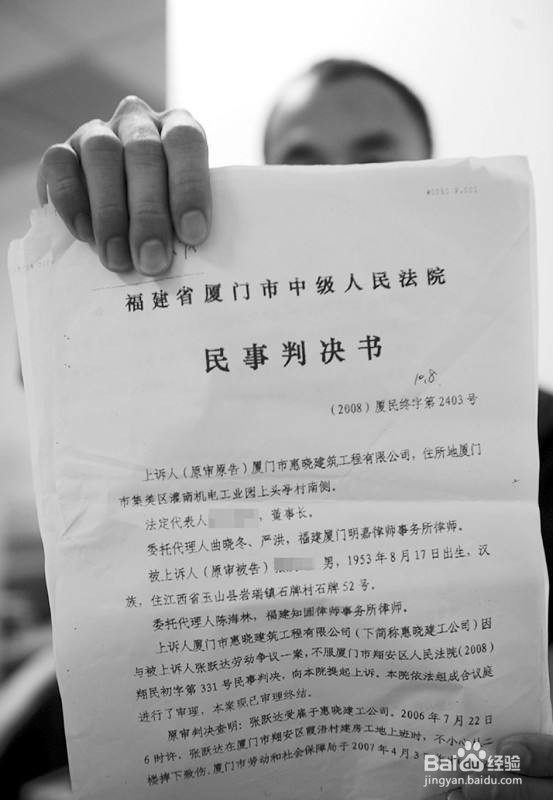 福建省厦门市中级人民法院
民事判决书
10.8
(2008)厦民终字第2403号
上诉人(原审原告)厦门市惠晓建筑工程有限公司,住所地厦门
市集美区灌南机电工业园上头亭村南侧。
法定代表人 ,董事长。
委托代理人曲晓冬、严洪,福建厦门明嘉律师事务所律师。
被上诉人(原审被告) 男,1953年8月17日出生,汉
族,住江西省玉山县岩瑞镇石牌村石牌52号。
委托代理人陈海林,福建知圆律师事务所律师。
上诉人厦门市惠晓建筑工程有限公司(下简称惠晓建工公司)因
与被上诉人张跃达劳动争议一案,不服厦门市翔安区人民法院(2008)
翔民初字第331号民事判决,向本院提起上诉。本院依法组成合议庭
进行了审理,本案现已审理终结。
原审判决查明:张跃达受雇于惠晓建工公司。2006年7月22日
6时许,张跃达在厦门市翔安区霞浯村建房工地上班时,不小心从二
楼摔下致伤。厦门市劳动和社会保障局于2007年4月3
Baidu经验
jingyan.baidu.com